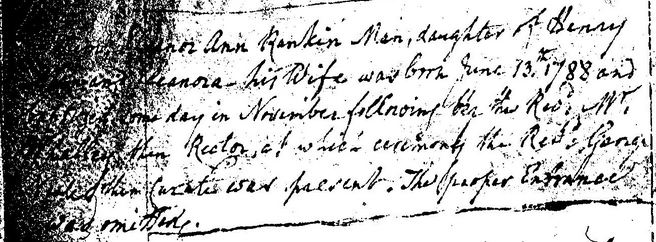 Ann Rankin Man, daughter of Henry
Eleanora his Wife was born June 13.th 1788 and
some day in November following by the Revd. Mr.
then Rector, at which ceremony the Revd. George
then Curate was present. The proper Entrance
was omitted.